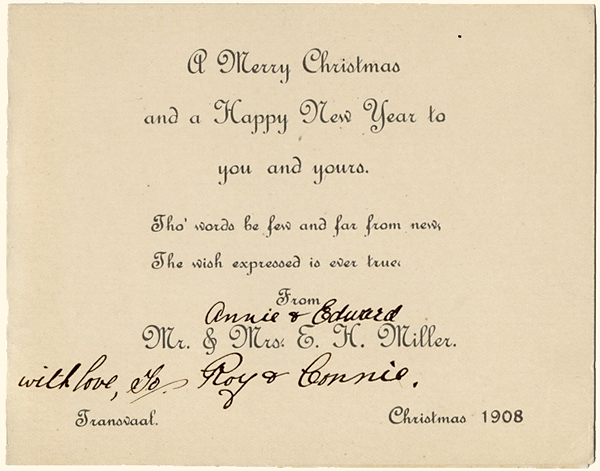 A Merry Christmas
and a Happy New Year to
you and yours.
Tho' words be few and far from new,
The wish expressed is ever true.
From
Annie & Edward
Mr. & Mrs. E. H. Miller.
with love, To Roy & Connie.
Transvaal.
Christmas 1908